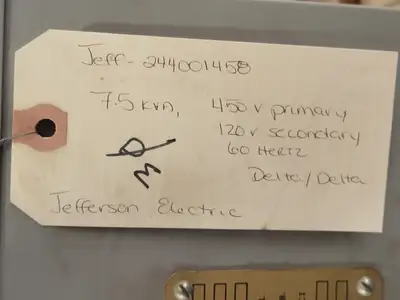 Jeff-244001458
7.5 kva, 450 v primary
120 v secondary
60 Hertz
Delta/Delta
Jefferson Electric